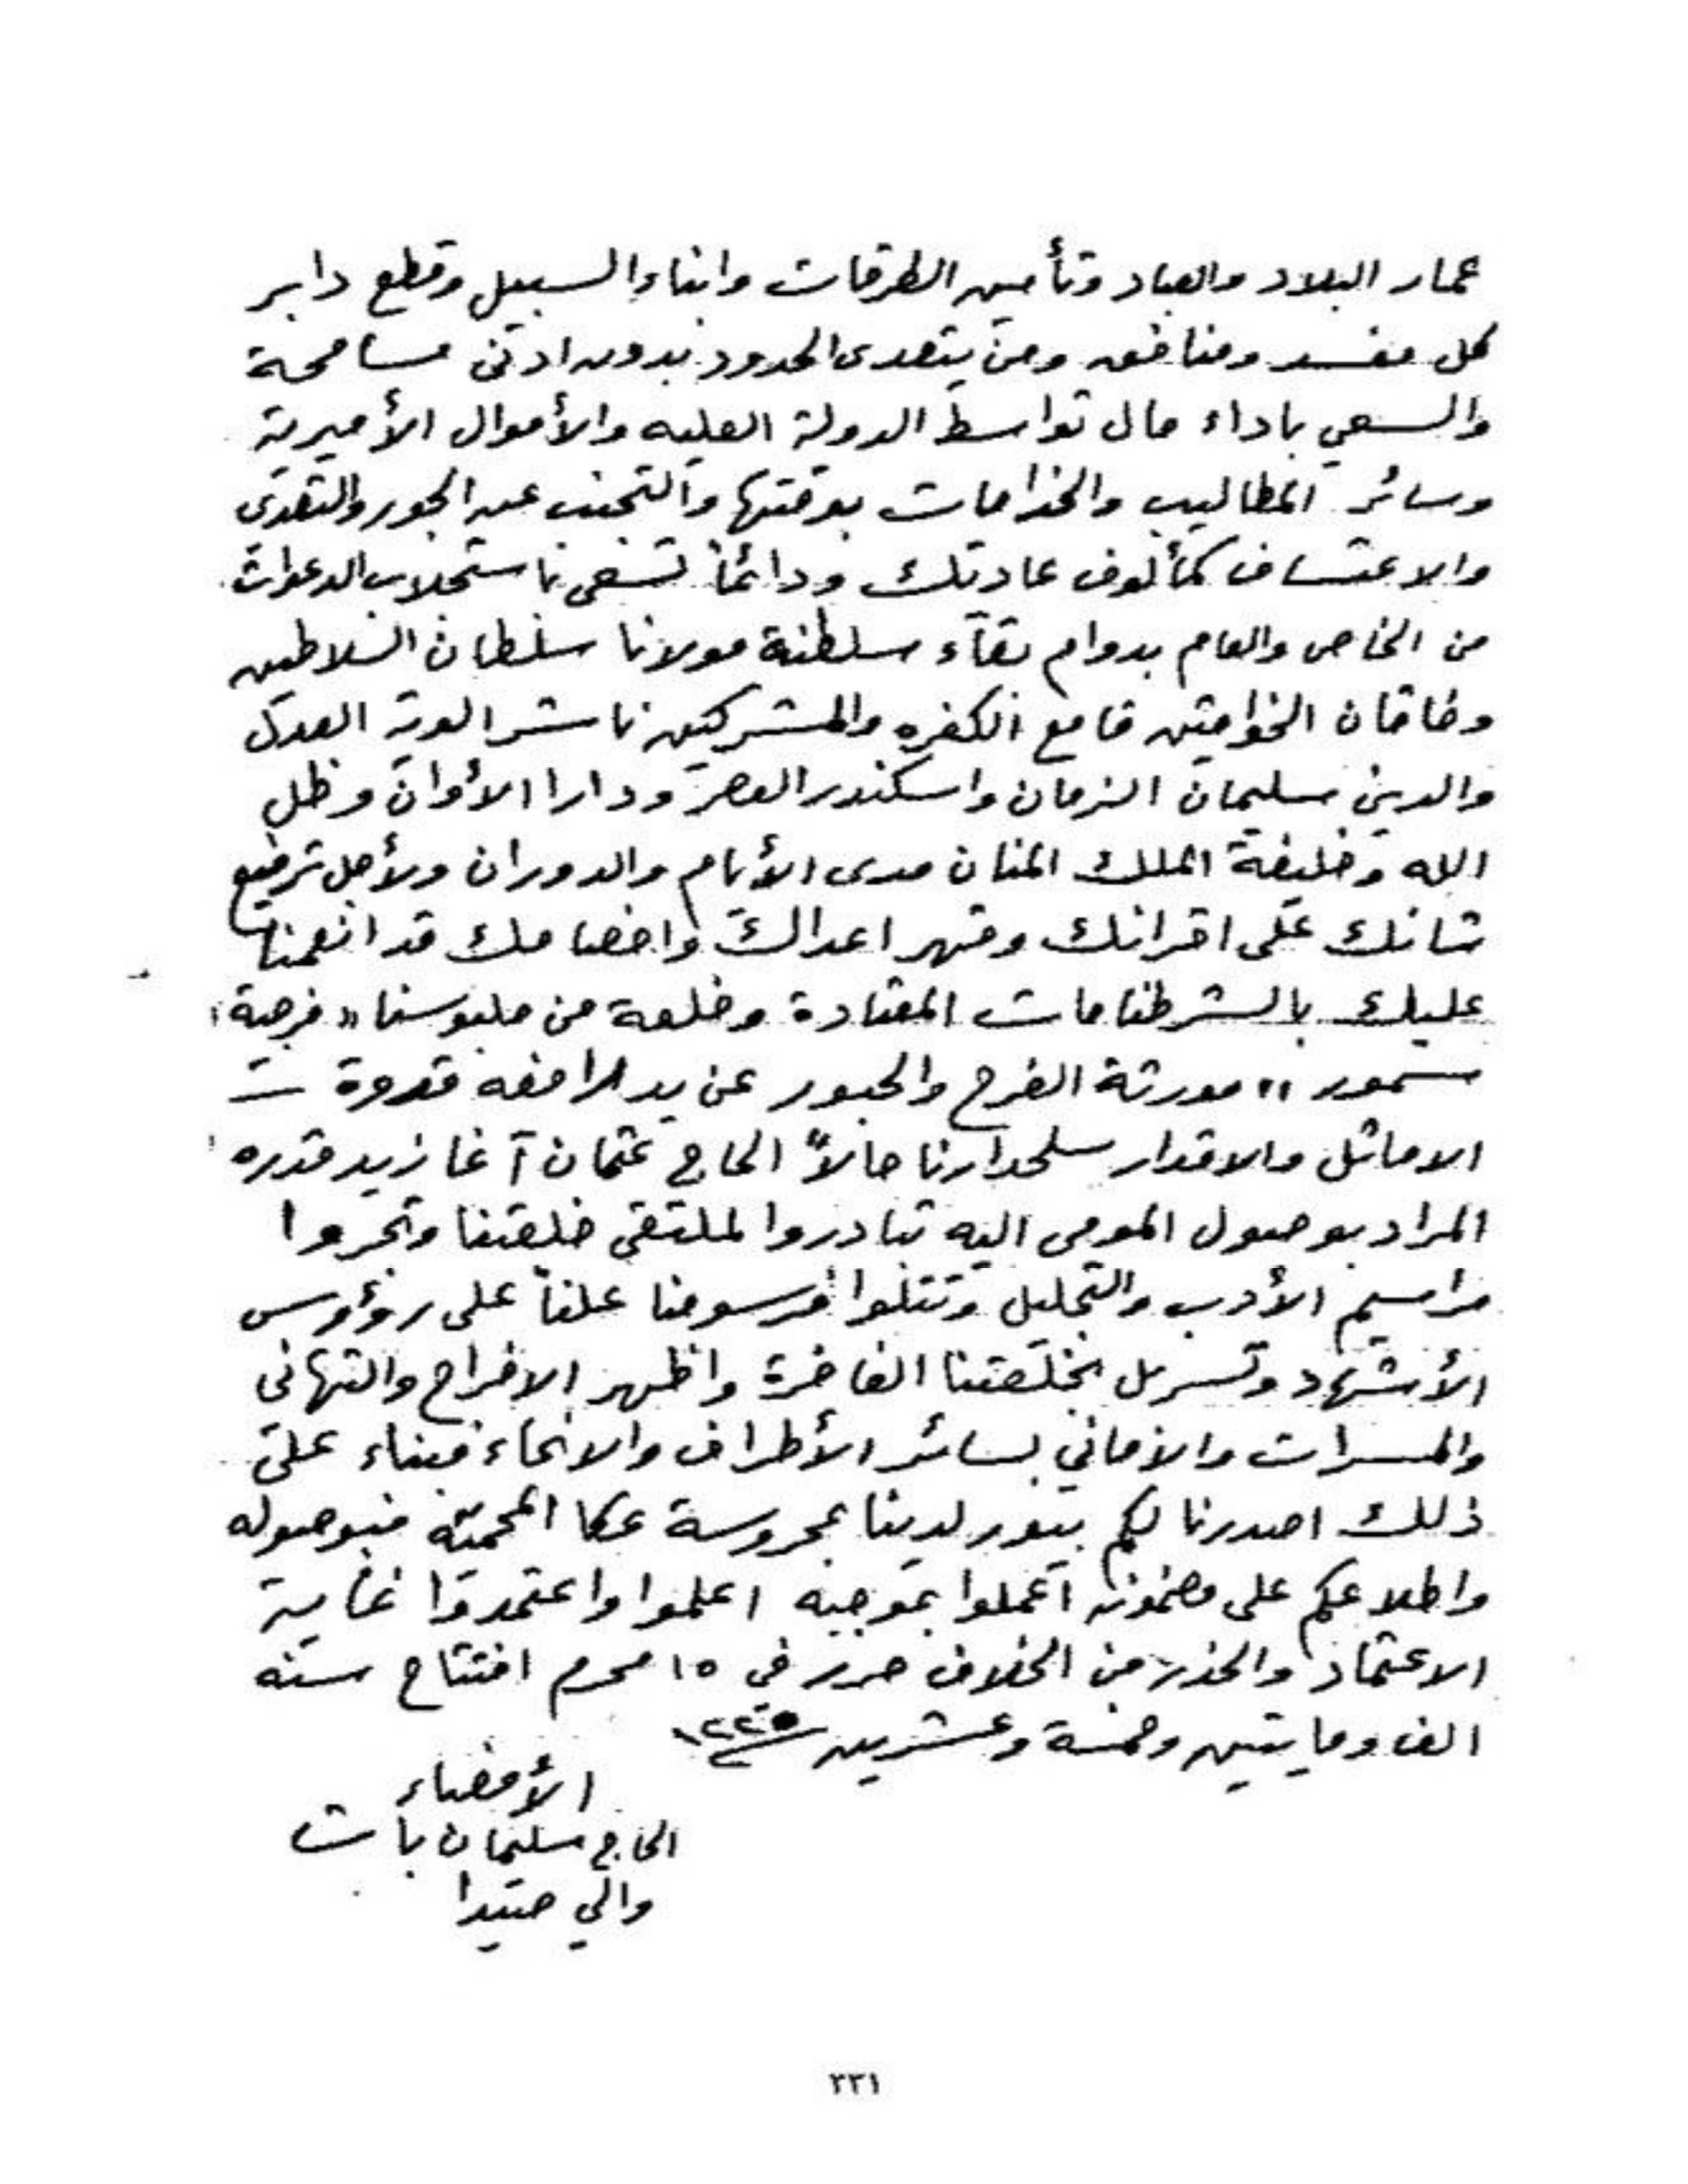 عمار البلاد والعباد وتأمين الطرقات وابناء السبيل وقطع دابر
كل مفسد ومنافق ومن يتعدى الحدود بدون ادنى مسامحة
والسعي باداء مال تواسط الدولة العليه والأموال الأميرية
وسائر المطاليب والخدامات بوقتها والتجنب عن الجور والتعدي
والاعتساف كمألوف عادتك ودائماً تسعى باستجلاب الدعوات
من الخاص والعام بدوام بقاء سلطنة مولانا سلطان السلاطين
وخاقان الخواقين قامع الكفره والمشركين ناشر الوية العدل
والدين سليمان الزمان واسكندر العصر ودارا الأوان وظل
الله وخليفة الملك المنان مدى الأيام والدوران ولأجل ترفيع
شانك على اقرانك وقهر اعداك واخصامك قد انعمنا
عليك بالشرطنامات المعتادة وخلعة من ملبوسنا «فرجية
سمور» مورثة الفرح والحبور عن يد رافعه قدوة
الاماثل والاقدار سلحدارنا حالاً الحاج عثمان آغا زيد قدره
المراد بوصول المومى اليه تبادروا لملتقى خلعتنا وتجروا
مراسيم الأدب والتجليل وتتلوا مرسومنا علناً على رؤوس
الأشهاد وتسربل بخلعتنا الفاخرة واظهر الافراح والتهانى
والمسرات والاماني بسائر الأطراف والانحاء فبناء على
ذلك اصدرنا لكم بيور لدينا بمحروسة عكا المحميّه فبوصوله
واطلاعكم على مضمونه اعملوا بموجبه اعلموا واعتمدوا غاية
الاعتماد والحذر من الخلاف حرر في ١٥ محرم افتتاح سنه
الف ومايتين وخمسة وعشرين سنة ١٢٢٥
الأمضاء
الحاج سليمان باشا
والي صيدا
٢٣١